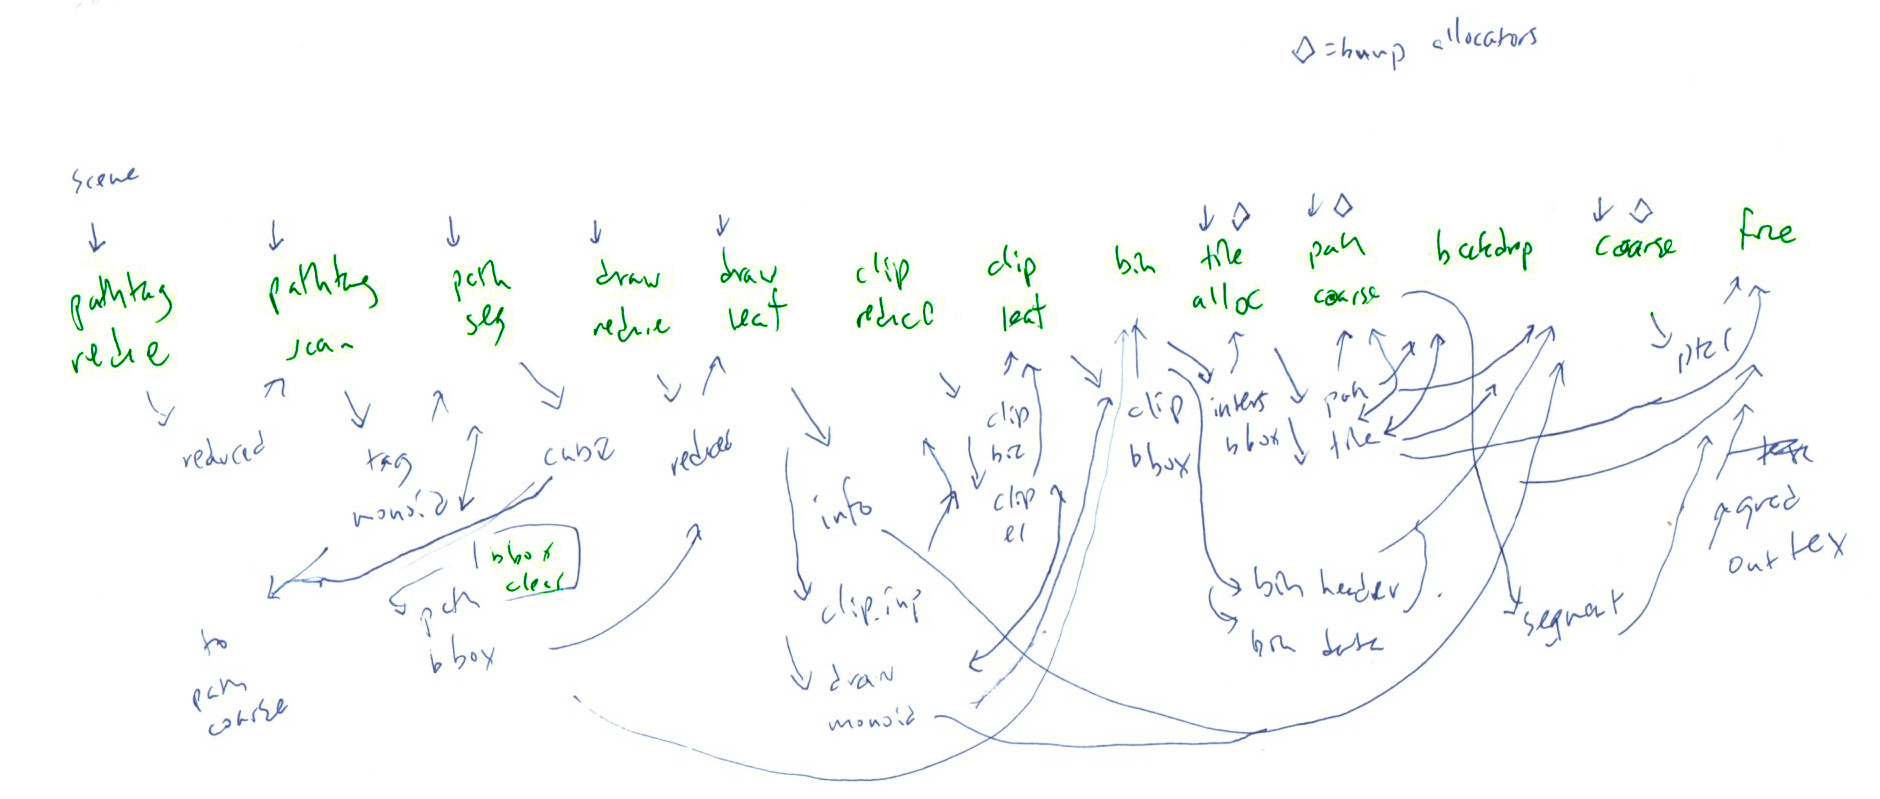 ◇ = bump allocators
scene
pathtag
reduce
pathtag
scan
path
seg
draw
reduce
draw
leaf
clip
reduce
clip
leaf
bin
tile
alloc
path
coarse
backdrop
coarse
fine
reduced
tag
monoid
cubic
reduced
info
clip
bic
clip
el
clip
bbox
inters
bbox
path
tile
ptcl
bbox
clear
path
bbox
clip_inp
draw
monoid
bin header
bin data
segment
grad
out tex
to
path
coarse